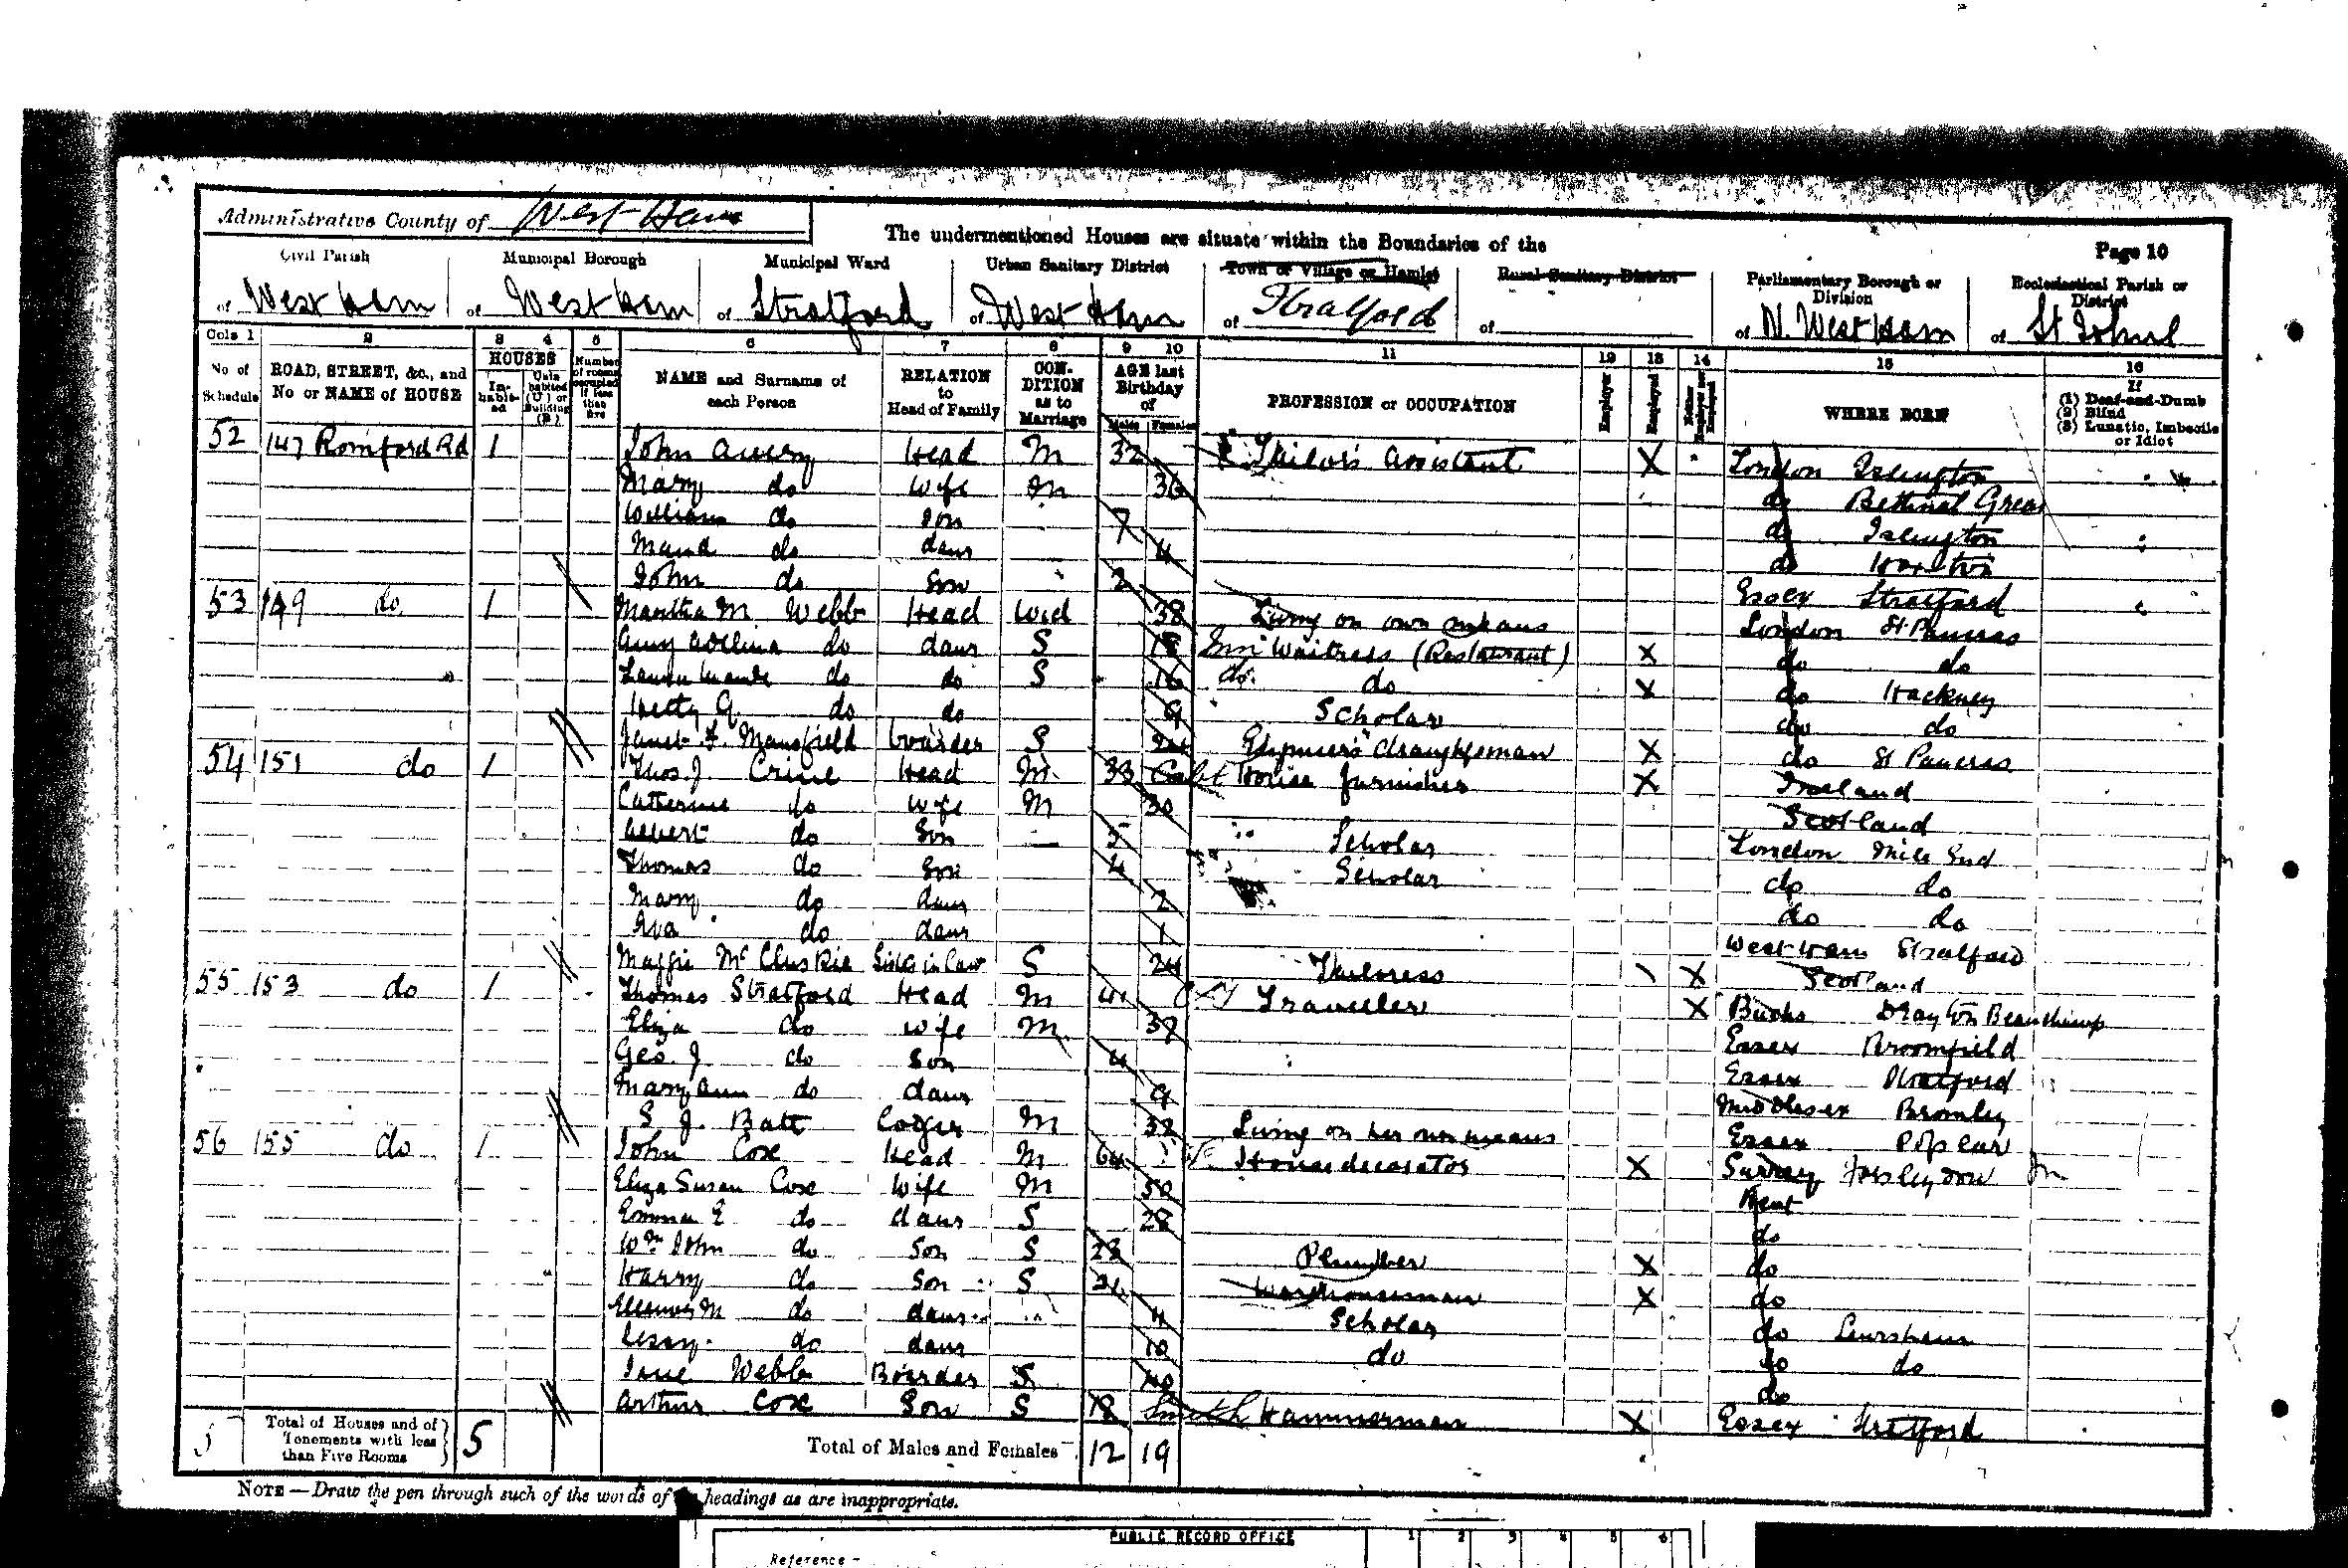 Administrative County of West Ham
The undermentioned Houses are situate within the Boundaries of the
Page 10
Civil Parish Municipal Borough Municipal Ward Urban Sanitary District Town or Village or Hamlet Rural Sanitary District Parliamentary Borough or Division Ecclesiastical Parish or District
of West Ham of West Ham of Stratford of West Ham of Stratford of of N. West Ham of St Johns
Cols 1 2 3 4 5 6 7 8 9 10 11 12 13 14 15 16
No of Schedule ROAD, STREET, &c., and No or NAME of HOUSE HOUSES Inhabited Uninhabited (U) or Building (B) Number of rooms occupied if less than five NAME and Surname of each Person RELATION to Head of Family CONDITION as to Marriage AGE last Birthday of Males Females PROFESSION or OCCUPATION Employer Employed Neither Employer nor Employed WHERE BORN If (1) Deaf-and-Dumb (2) Blind (3) Lunatic, Imbecile or Idiot
52 147 Romford Rd 1 John Avery Head M 32 Tailor's Assistant X London Islington
Mary do Wife M 36 do Bethnal Green
William do Son 7 do Islington
Maud do daur 4 do Hoxton
John do Son 2 Essex Stratford
53 149 do 1 Martha M. Webb Head Wid 38 Living on own means London St Pancras
Amy do daur S 18 Waitress (Restaurant) X do do
do do S 16 do do X do Hackney
Hetty G. do do 9 Scholar do do
Janet F. Mansfield boarder S draughtsman X do St Pancras
54 151 do 1 Thos. J. Crine Head M 33 House furnisher X Ireland
Catherine do Wife M 30 Scotland
Albert do Son 5 Scholar London Mile End
Thomas do Son 4 Scholar do do
Mary do daur 2 do do
Eva do daur 1 West Ham Stratford
Maggie McCluskie Sister in law S 24 Tailoress X Scotland
55 153 do 1 Thomas Stratford Head M 41 Traveller X Bucks Drayton Beauchamp
Eliza do Wife M 37 Essex Broomfield
Geo. J. do Son 4 Essex Stratford
Mary Ann do daur 9 Middlesex Bromley
S J. Batt Lodger M 32 Living on her own means Essex Poplar
56 155 do 1 John Cox Head M 64 House decorator X Surrey Horsleydown
Eliza Susan Cox Wife M 50 Kent
Emma E do daur S 28 do
Wm John do Son S 23 Plumber X do
Harry do Son S 21 Warehouseman X do
Elleanor M do daur 4 Scholar do Lewisham
do daur 10 do do do
Jane Webb Boarder S 40 do
Arthur Cox Son S 18 Smith Hammerman X Essex Stratford
5 Total of Houses and of Tenements with less than Five Rooms 5 Total of Males and Females 12 19
NOTE—Draw the pen through such of the words of the headings as are inappropriate.
PUBLIC RECORD OFFICE 1 2 3 4 5 6
Reference -